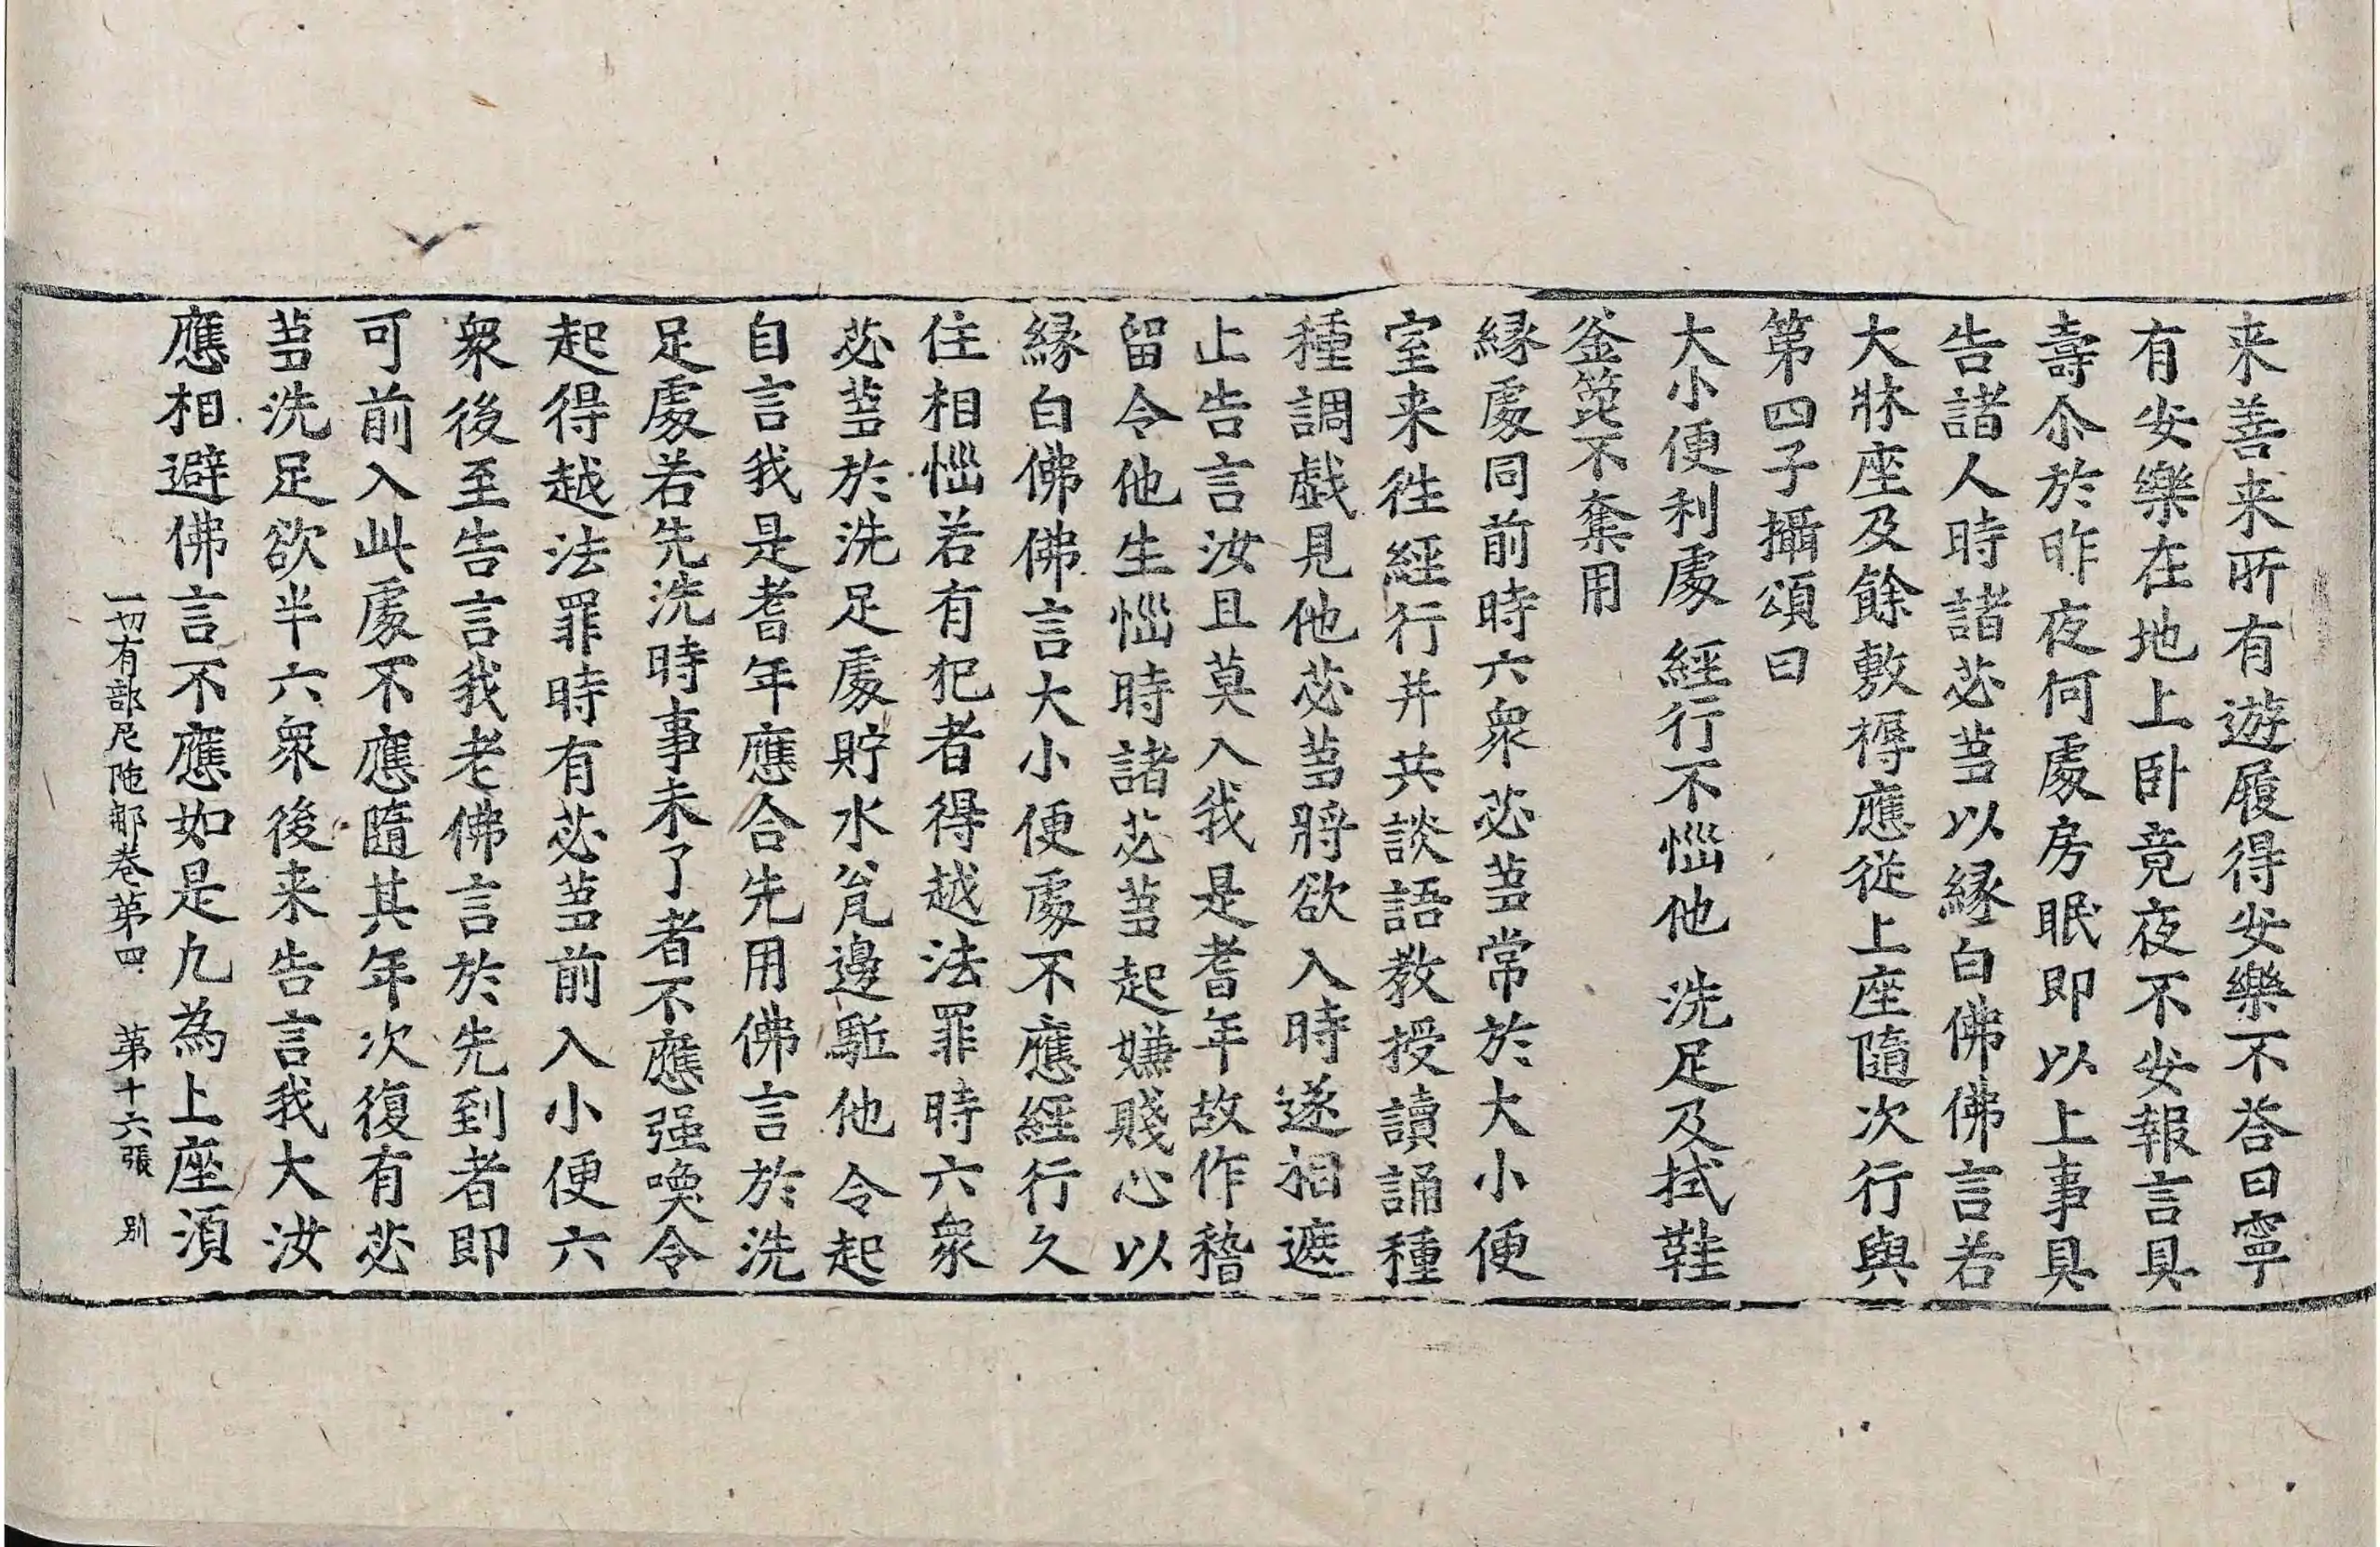 来善来所有遊履得安樂不荅曰寧
有安樂在地上卧竟夜不安報言具
壽尒於昨夜何處房眠即以上事具
告諸人時諸苾蒭以縁白佛佛言若
大牀座及餘敷褥應從上座隨次行與
第四子攝頌曰
大小便利處 經行不惱他 洗足及拭鞋
釜箆不奪用
縁處同前時六衆苾蒭常於大小便
室来往經行并共談語教授讀誦種
種調戲見他苾蒭將欲入時遂相遮
止告言汝且莫入我是耆年故作稽
留令他生惱時諸苾蒭起嫌賤心以
縁白佛佛言大小便處不應經行久
住相惱若有犯者得越法罪時六衆
苾蒭於洗足處貯水瓫邊駈他令起
自言我是耆年應合先用佛言於洗
足處若先洗時事未了者不應强喚令
起得越法罪時有苾蒭前入小便六
衆後至告言我老佛言於先到者即
可前入此處不應隨其年次復有苾
蒭洗足欲半六衆後来告言我大汝
應相避佛言不應如是凢為上座須
一切有部尼陁那卷第四 第十六張 别